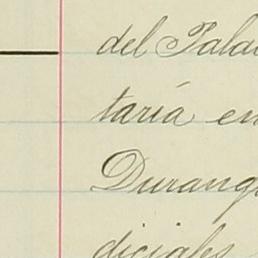 del Pala
taría en
Durang
diciales